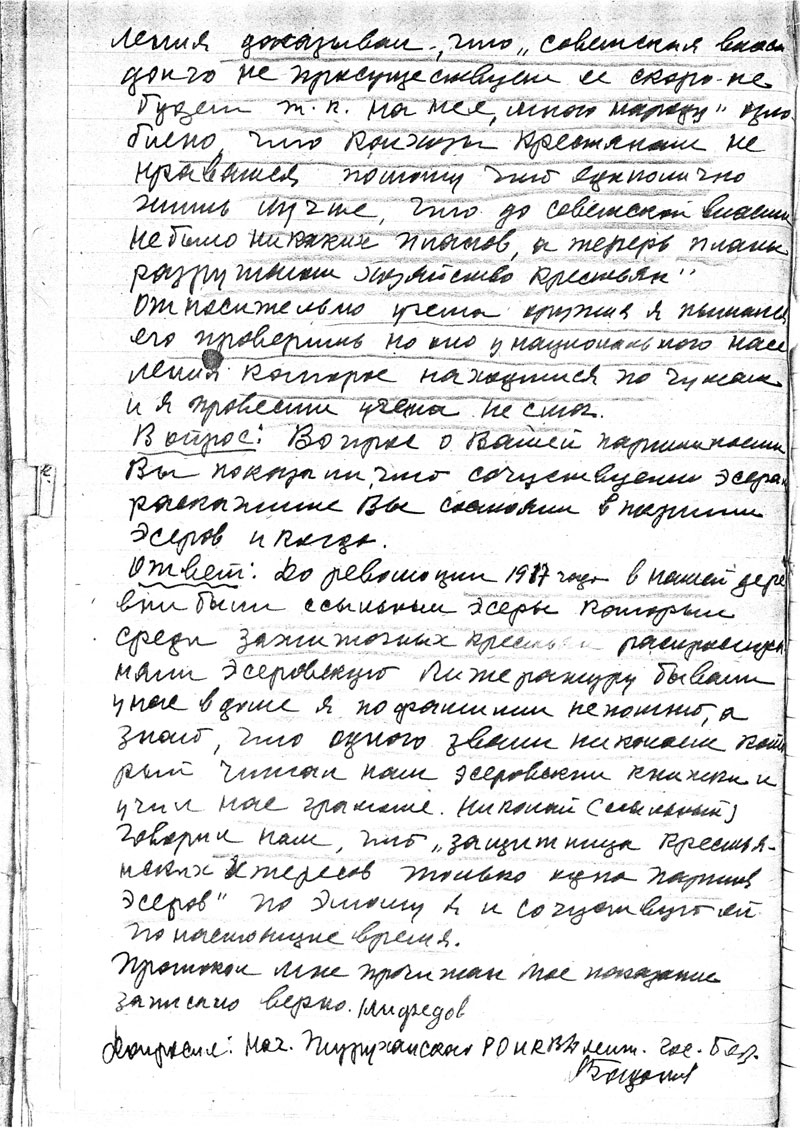 ления доказывал, что „советская власть
долго не просуществует ее скоро не
будет т.к. на нее „много народу" озло-
блено, что колхозы крестьянам не
нравятся потому что единолично
жить лучше, что до советской власти
не было никаких планов, а теперь планы
разрушили хозяйство крестьян"
Относительно учета оружия я пытался
его проверить но оно у национального насе
ления которое находится по чумам
и я провести учета не смог.
Вопрос: Вопрос о Вашей партийности
Вы показали, что сочувствуете эсерам
расскажите Вы состояли в партии
Эсеров и когда.
Ответ: До революции 1917 года в нашей дере
вни были ссыльные эсеры которые
среди зажиточных крестьян распростра
няли Эсеровскую литературу бывали
у нас в доме я по фамилии не помню, а
знаю, что одного звали Николаем кото
рый читал нам эсеровские книжки и
учил нас грамоте. Николай (ссыльный)
говорил нам, что „защитница крестья-
нских интересов только одна партия
Эсеров" по этому я и сочувствую ей
по настоящие время.
Протокол мне прочитан мое показание
записано верно.
Допросил: Нач. Туруханского РО НКВД лейт. гос. Без.